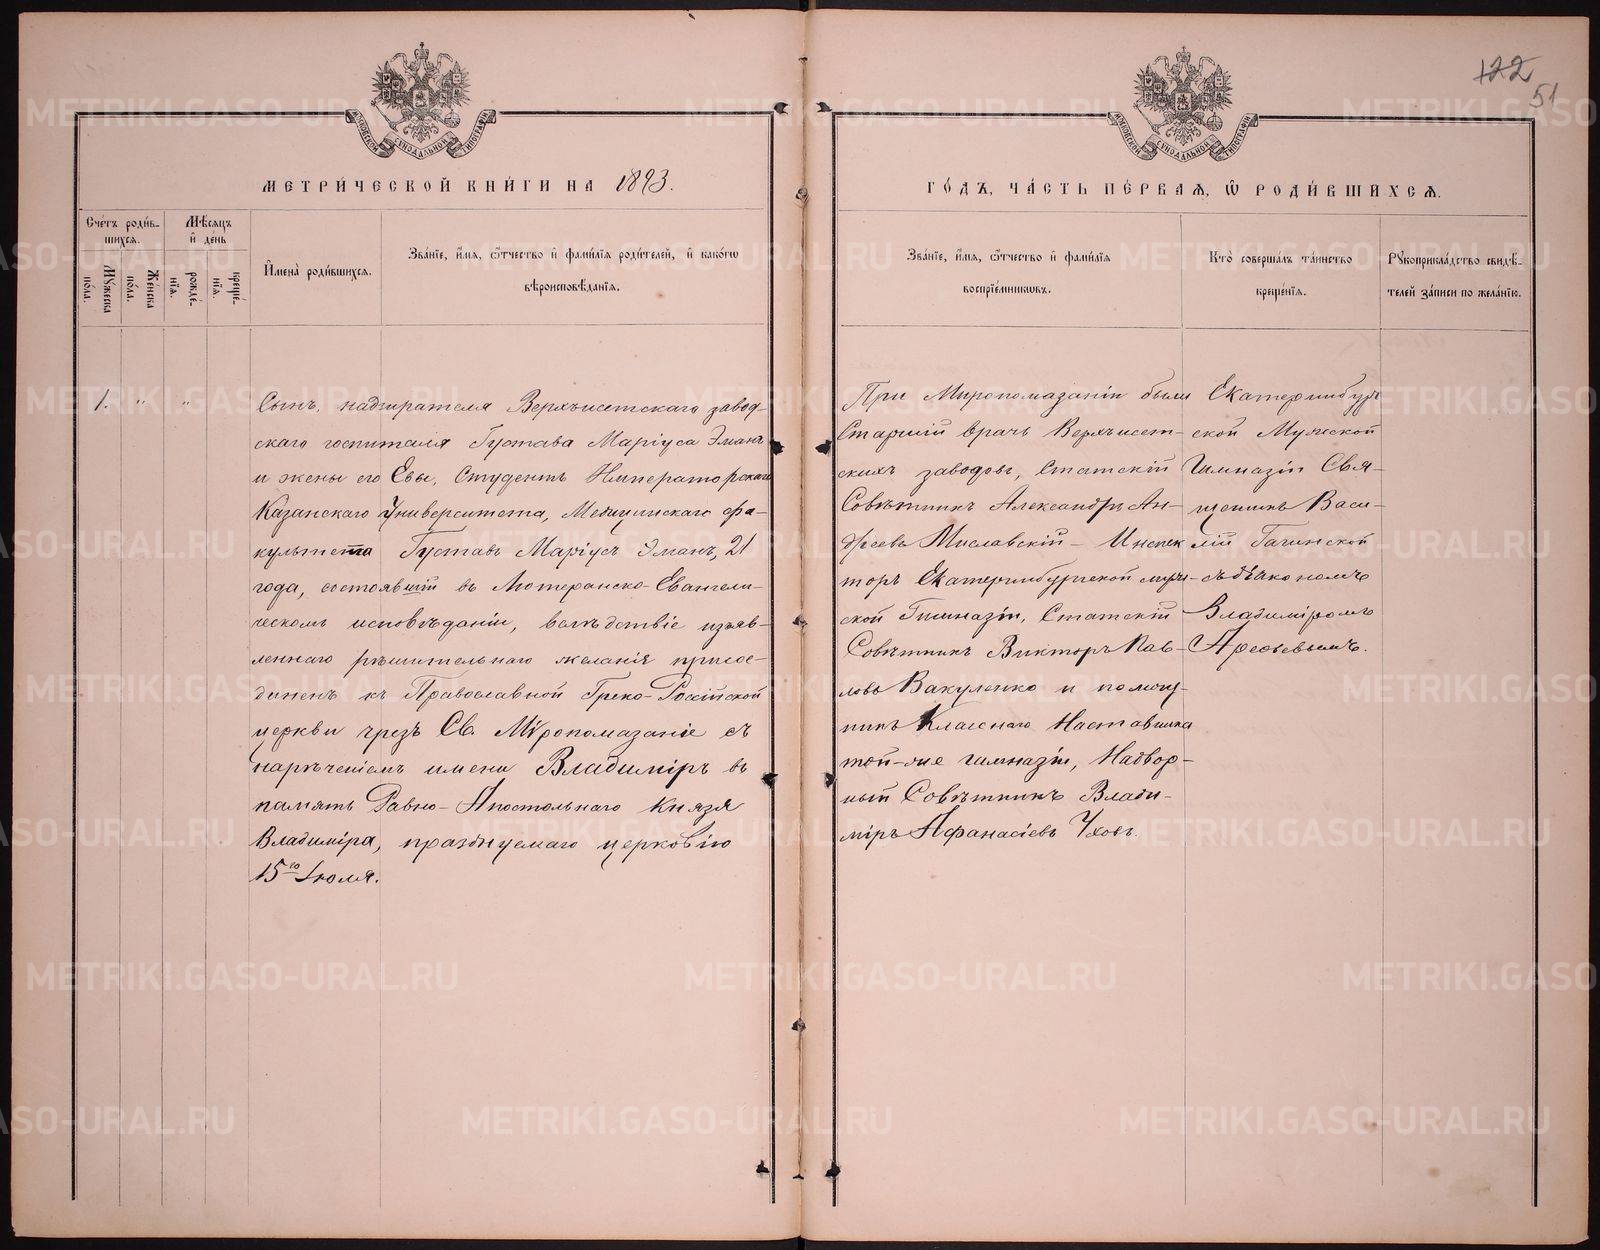 122
51
МОСКОВСКОЙ СѴНОДАЛЬНОЙ ТИПОГРАФІИ
МОСКОВСКОЙ СѴНОДАЛЬНОЙ ТИПОГРАФІИ
МЕТРИ́ЧЕСКОЙ КНИ́ГИ НА 1893.
ГО́ДЪ, ЧА́СТЬ ПЕ́РВАѦ, Ѿ РОДИ́ВШИХСѦ.
Сче́тъ роди́в-
шихсѧ.
Мꙋжеска
пола.
Же́нска
пола.
Мѣ́сѧцъ
и҆ де́нь
рожде́-
нїѧ.
креще́-
нїѧ.
И҆мена̀ роди́вшихсѧ.
Зва́нїе, и҆́мѧ, ѻ҆́тчество и҆ фами́лїѧ роди́телей, и҆ како́гѡ
вѣроисповѣ́данїѧ.
Зва́нїе, и҆́мѧ, ѻ҆́тчество и҆ фами́лїѧ
воспрїе́мникѡвъ.
Кто̀ соверша́лъ та́инство
креще́нїѧ.
Рꙋкоприкла́дство свидѣ́-
телей за́писи по жела́нїю.
1. " "
Сынъ, надзирателя Верхъисетскаго завод-
скаго госпиталя Густава Маріуса Эманъ
и жены его Евы, Студентъ Императорскаго
Казанскаго Университета, Медицинскаго фа-
культета Густавъ Маріусъ Эманъ, 21
года, состоявшій въ Лютеранско-Евангели-
ческомъ исповѣданіи, вслѣдствіе изъяв-
леннаго рѣшительнаго желанія присое-
диненъ къ Православной Греко-Россійской
церкви чрезъ Св. Мѵропомазаніе съ
нарѣченіемъ имени Владиміръ въ
память Равно-Апостольнаго Князя
Владиміра, празднуемаго церковію
15го Іюля.
При Миропомазаніи были
Старшій врачъ Верхъисет-
скихъ заводовъ, Статскій
Совѣтникъ Александръ Ан-
дреевъ Миславскій - Инспек
торъ Екатеринбургской муж-
ской Гимназіи, Статскій
Совѣтникъ Викторъ Пав-
ловъ Вакуленко и помощ-
никъ Класснаго Наставника
той-же гимназіи, Надвор-
ный Совѣтникъ Влади-
міръ Афанасіевъ Уховъ.
Екатеринбург
ской Мужской
Гимназіи Свя-
щенникъ Васи-
лій
съ діакономъ
Владиміромъ
Арефьевымъ.
METRIKI.GASO-URAL.RU